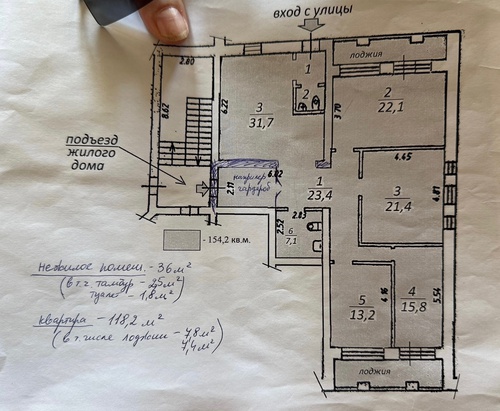 вход с улицы
лоджия
2.80
1
2
6.22
8.62
3
31,7
3.70
2
22,1
подъезд
жилого
дома
4.45
6.02
2.11
например
гардероб
1
23,4
3
21,4
4.81
2.83
2.52
6
7,1
- 154,2 кв.м.
нежилое помещ. - 36 м²
(в т.ч. тамбур - 2,5 м²
туалет - 1,8 м²)
квартира - 118,2 м²
(в т.числе лоджии - 7,8 м²
7,4 м²)
4.16
5
13,2
4
15,8
5.54
лоджия